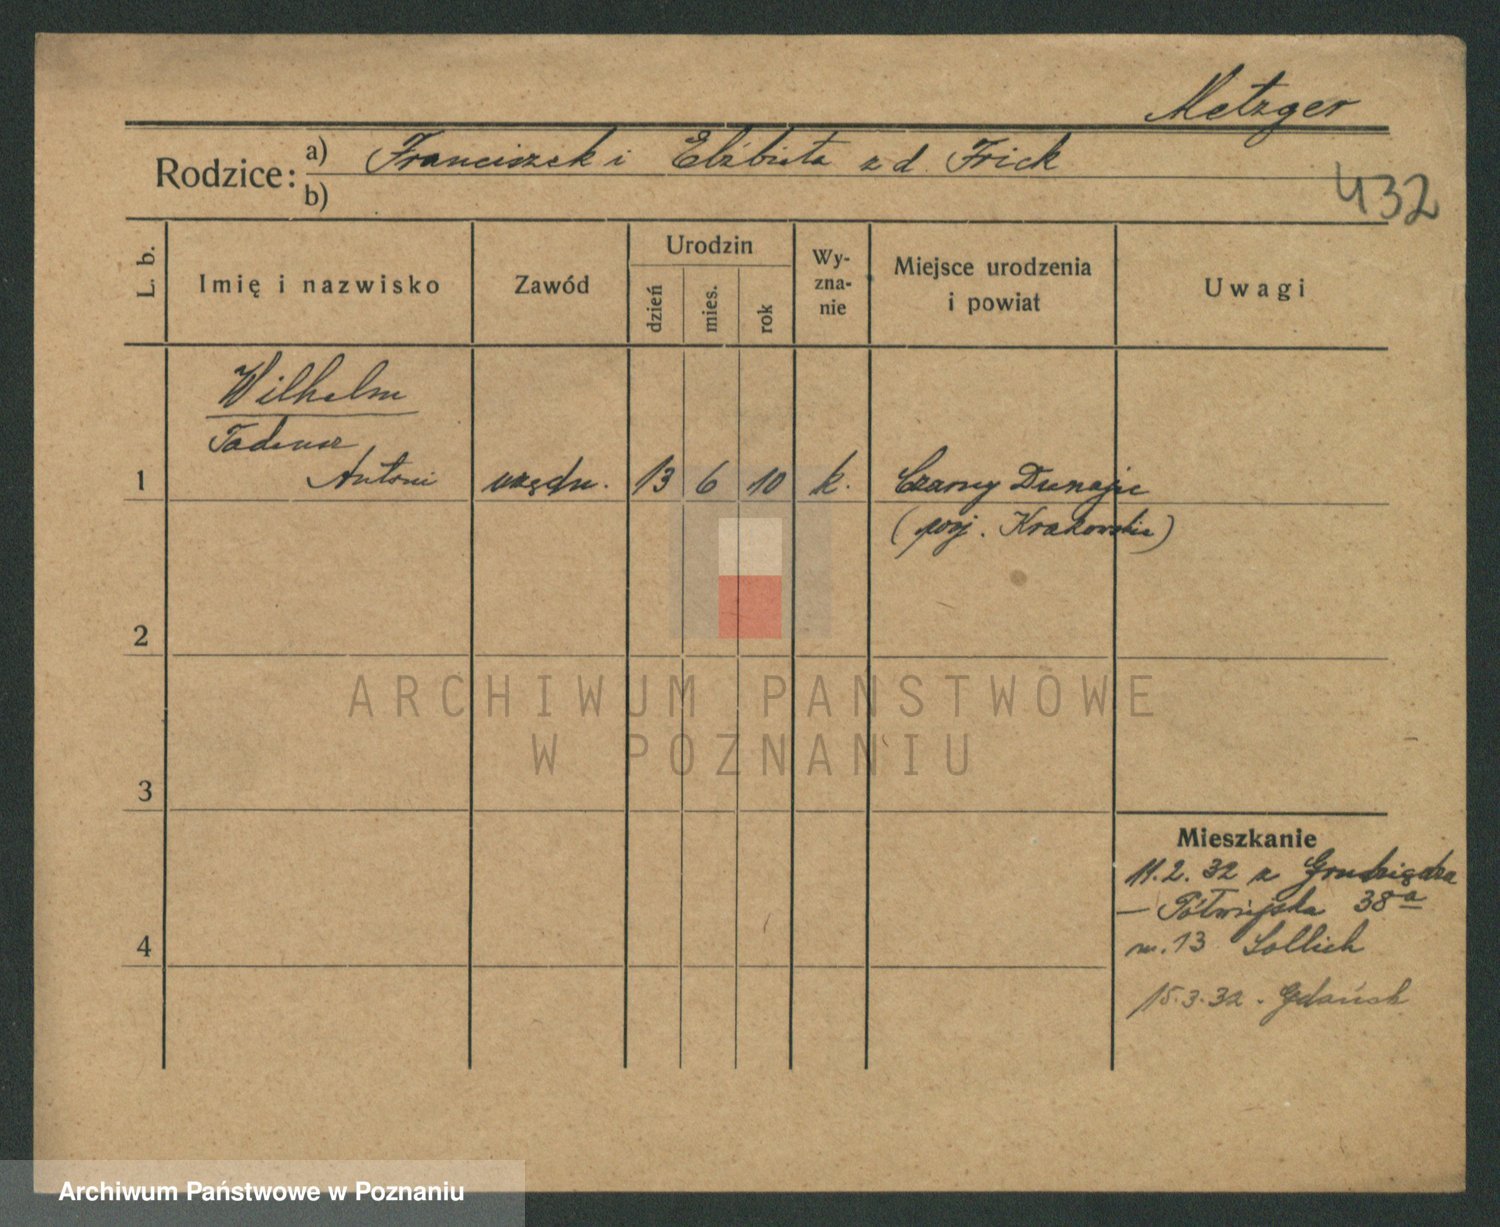 Metzger
Rodzice: a) Franciszek i Elżbieta z d. Frick
b)
432
L. b.
Imię i nazwisko
Zawód
Urodzin
dzień
mies.
rok
Wy-
zna-
nie
Miejsce urodzenia
i powiat
Uwagi
Wilhelm
Tadeusz
1 Antoni urzędn. 13 6 10 k. Czarny Dunajec
(woj. Krakowskie)
2
ARCHIWUM PAŃSTWOWE
W POZNANIU
3
Mieszkanie
11.2.32 z Grudziądza
— Półwiejska 38a
m. 13 Sollich
4
15.3.32. Gdańsk
Archiwum Państwowe w Poznaniu